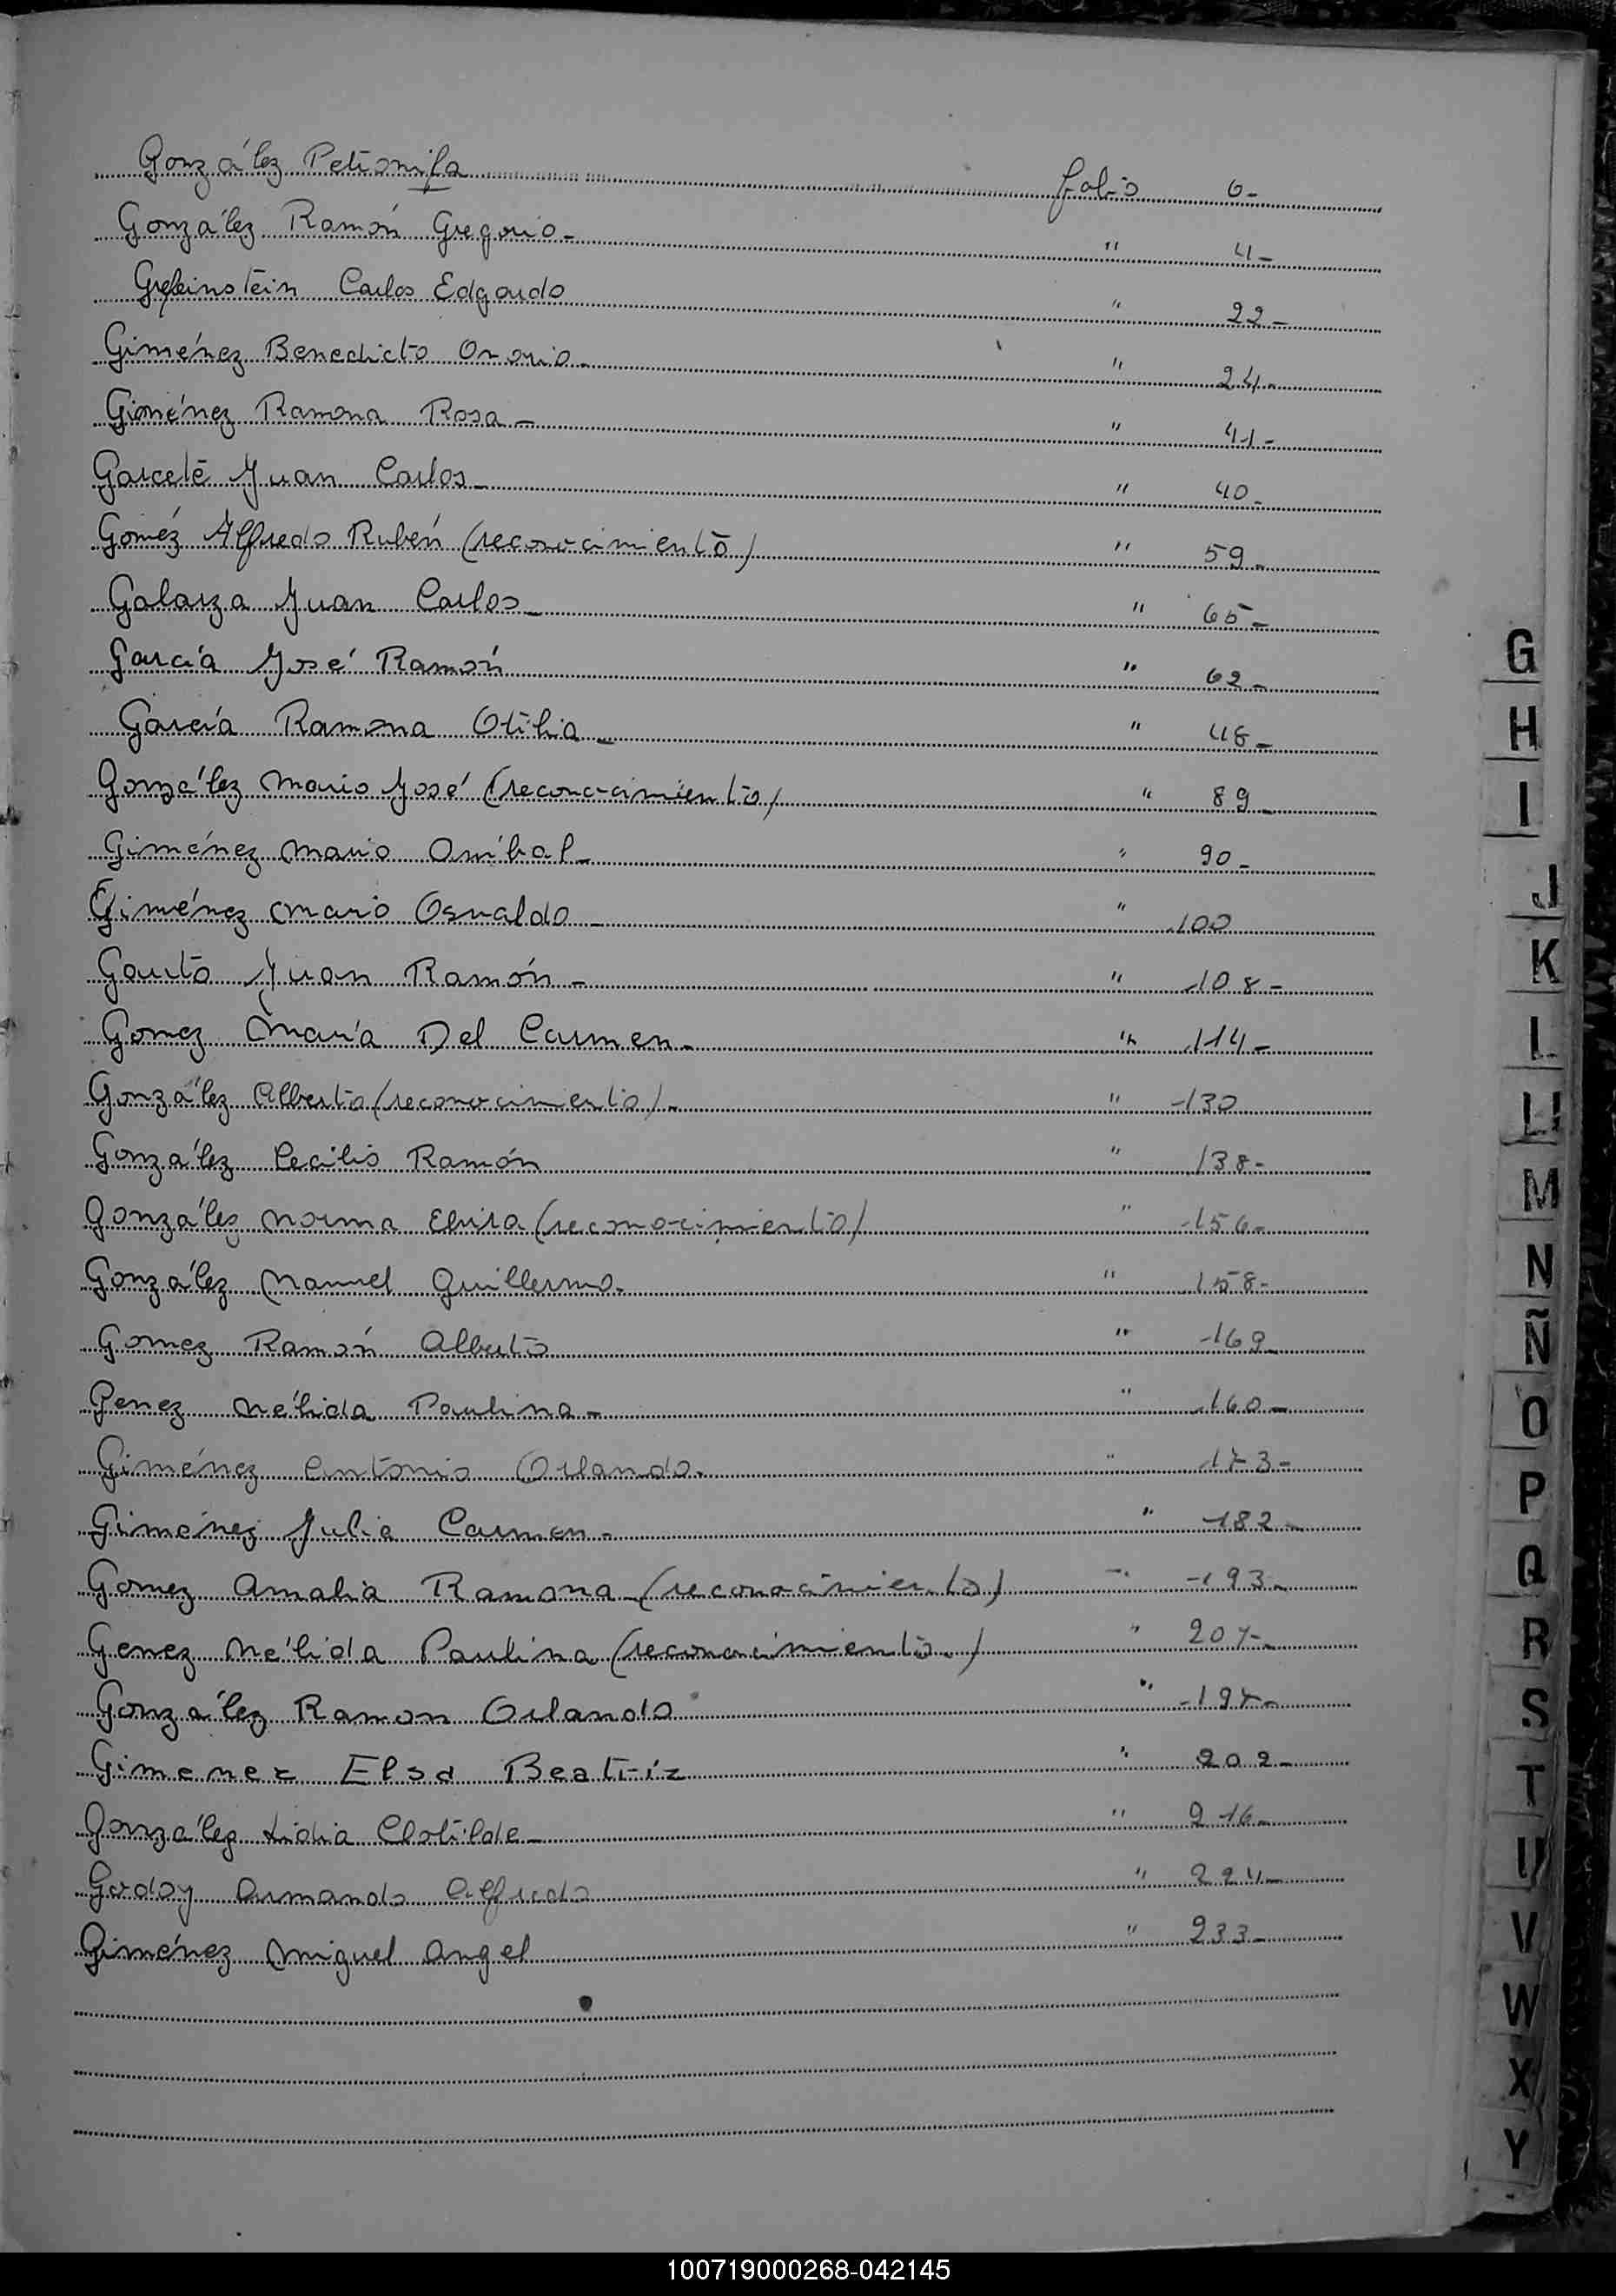 González Petronila folio 6-
González Ramón Gregorio- " 4-
Carlos Edgardo " 22-
Giménez Benedicto Onorio- " 24-
Giménez Ramona Rosa- " 41-
Garcete Juan Carlos- " 40-
Goméz Alfredo Rubén (reconocimiento) " 59-
Galarza Juan Carlos- " 65-
García José Ramón " 62-
García Ramona Otilia- " 48-
González Mario José (reconocimiento) " 89-
Giménez Mario Aníbal- " 90-
Giménez Mario Osvaldo- " 100
Gauto Juan Ramón- " 108-
Gomez María Del Carmen- " 114-
González Alberto (reconocimiento)- " 130
González Cecilio Ramón " 138-
González Norma Elvira (reconocimiento) " 156-
González Manuel Guillermo- " 158-
Gomez Ramón Alberto " 169-
Genez Nélida Paulina- " 160-
Giménez Antonio Orlando- " 173-
Giménez Julia Carmen- " 182-
Gomez Amalia Ramona-(reconocimiento) " 193-
Genez Nélida Paulina (reconocimiento.) " 207-
González Ramon Orlando " 197-
Gimenez Elsa Beatríz " 202-
González Lidia Clotilde- " 216-
Godoy Armando Alfredo " 224-
Giménez Miguel Angel " 233-
G
H
I
J
K
L
LL
M
N
Ñ
O
P
Q
R
S
T
U
V
W
X
Y
100719000268-042145